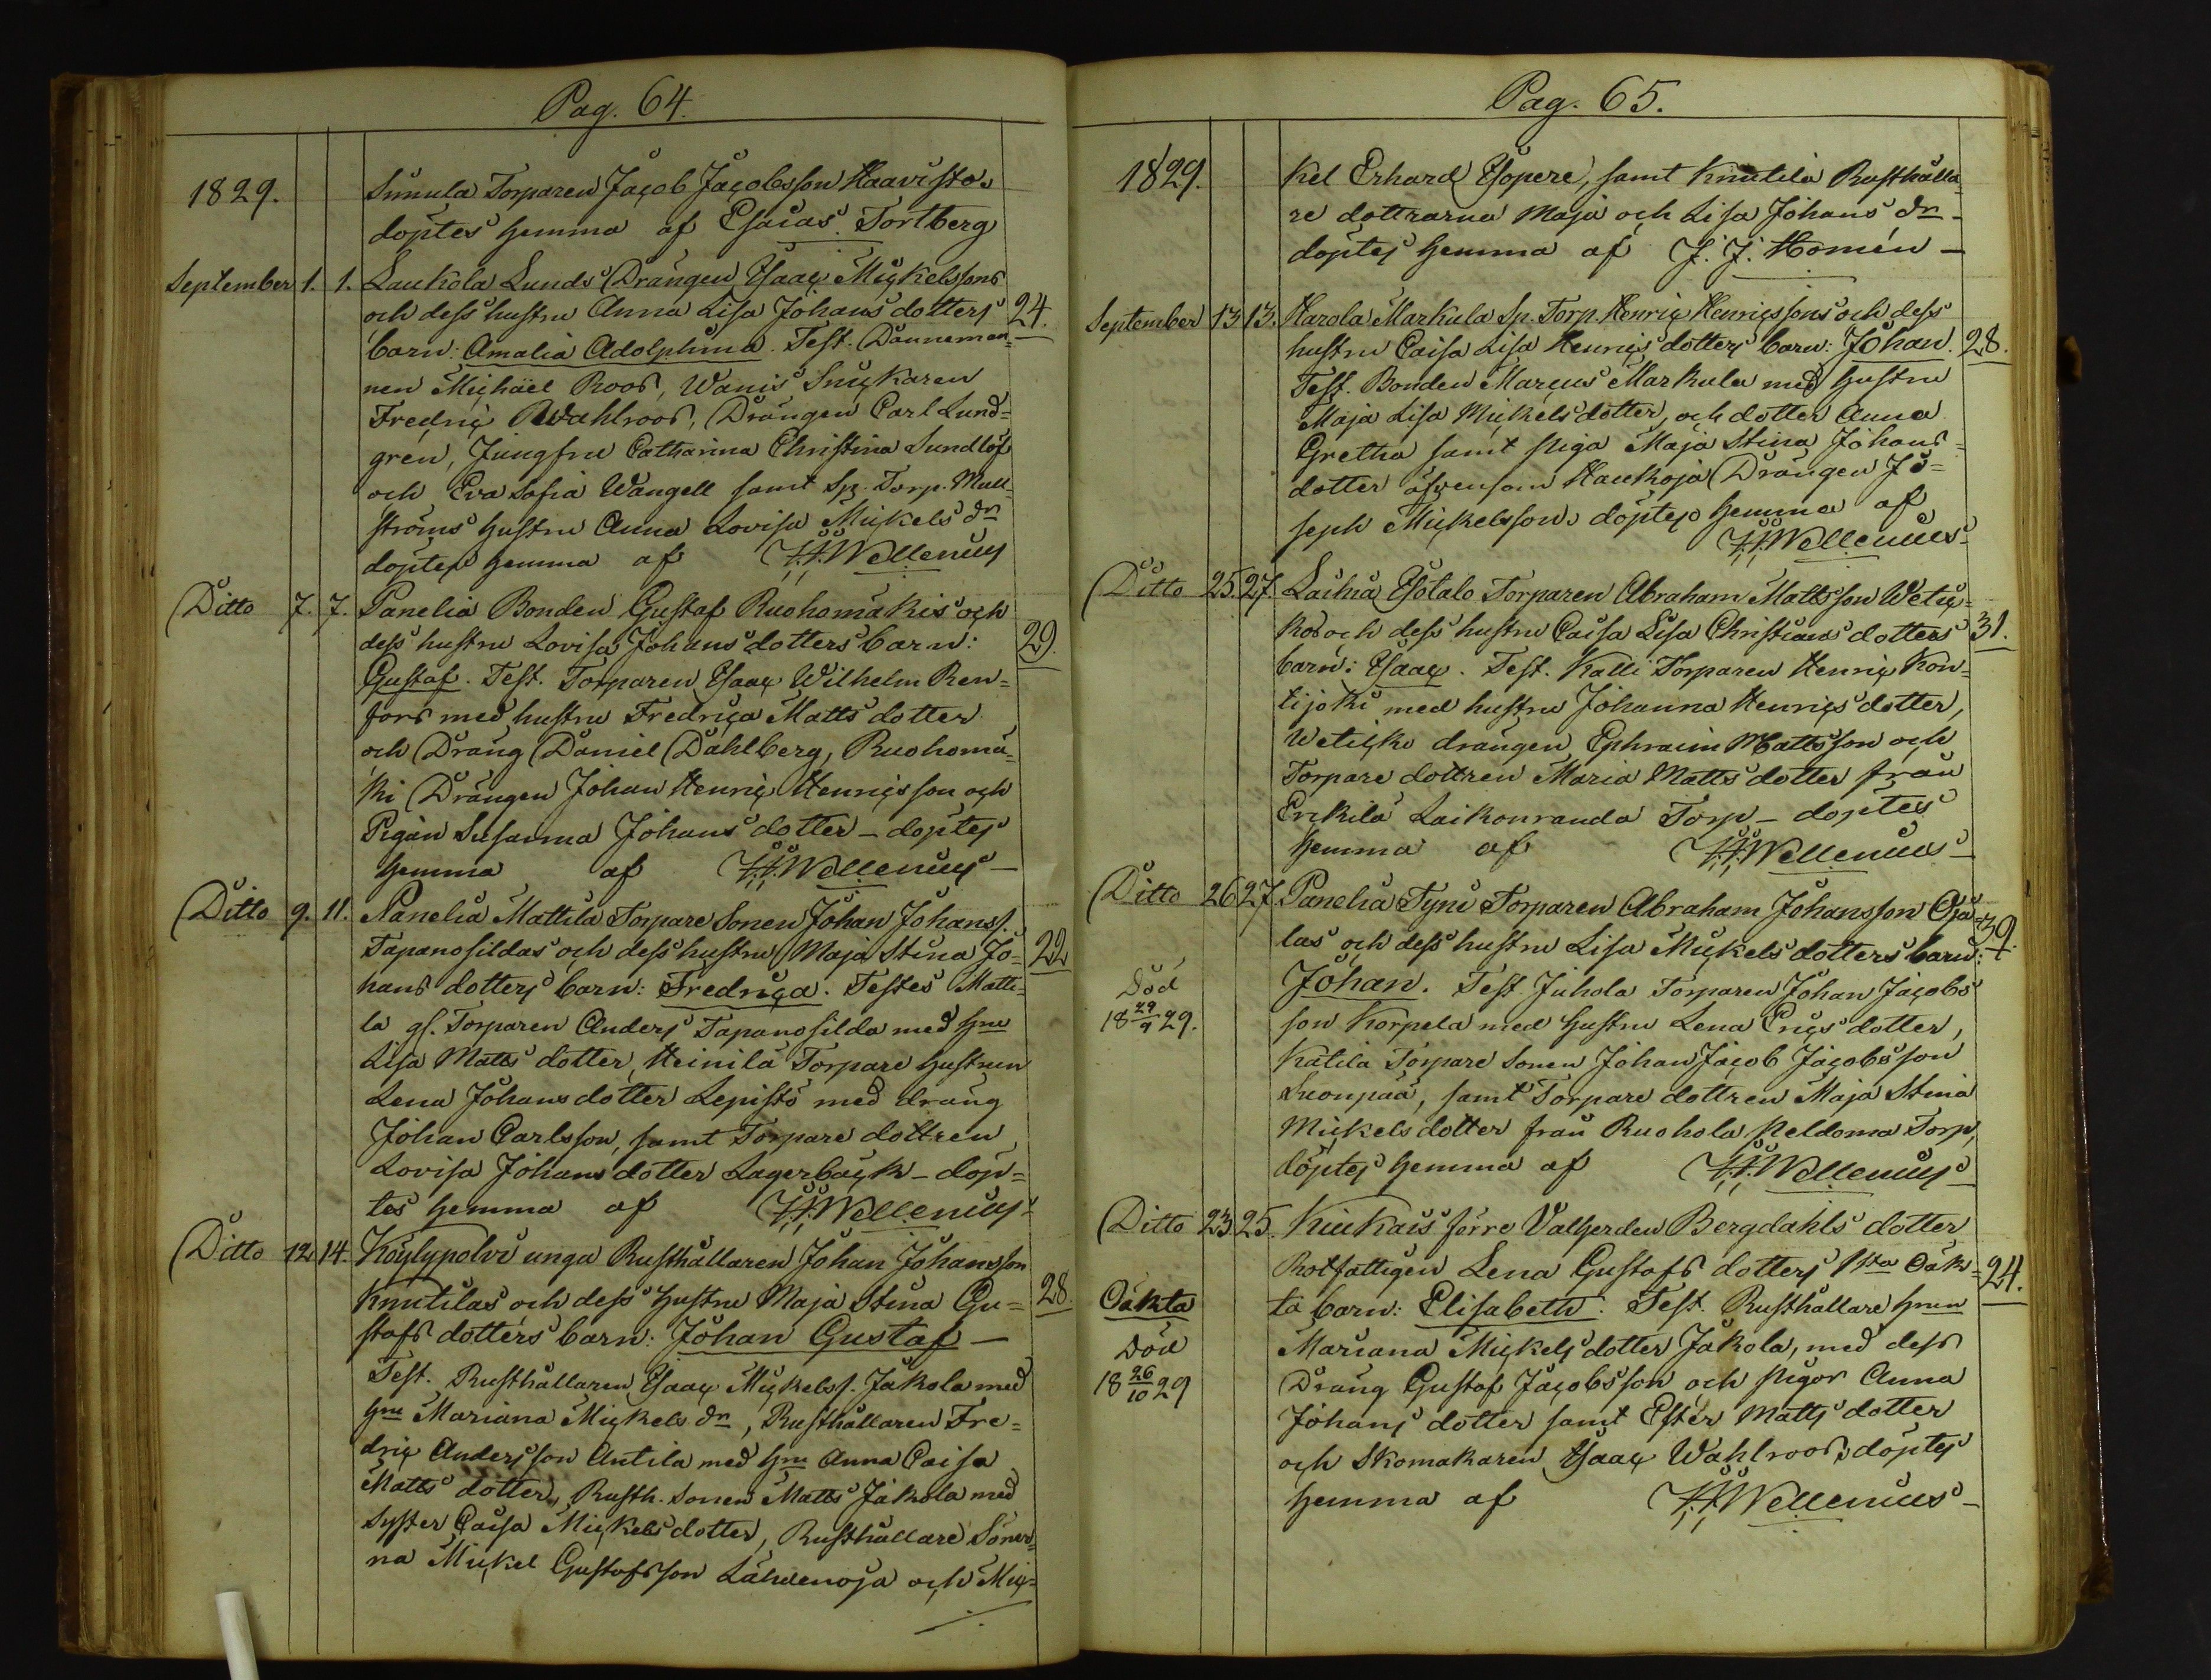 Pag. 64.
1829. Sunula Torparen Jacob Jacobsson Haavisto.
döptes hemma af Esaias Tortberg
September 1. 1. Laukola Lunds Drängen Isaac Mickelssons
och dess hustru Anna Lisa Johans dotters 24.
barn: Amalia Adolphina. Test. Danneman=
nen Michäel Roos, Wanis Snickaren
Fredric Wahlroos, Drängen Carl Lund=
gren, Jungfru Catharina Christina Sundlöf
och Eva Sofia Wangell samt Sp. Torp. Mull=
ströms hustru Anna Lovisa Mickels dr
döptes hemma af H.H. Wellenius
Ditto 7. 7. Panelia Bonden Gustaf Ruohomäkis och
dess hustru Lovisa Johans dotters barn: 29.
Gustaf. Test. Torparen Isaac Wilhelm Ren=
fors med hustru Fredrica Matts dotter
och Dräng Daniel Dahlberg, Ruohomä=
ki Drängen Johan Henric Henricsson och
Pigan Susanna Johans dotter – döptes
hemma af H.H. Wellenius –
Ditto 9. 11. Panelia Mattila Torpare Sonen Johan Johanss.
Tapanosildas och dess hustru Maja Stina Jo= 22
hans dotters barn: Fredrica. Testes Matti=
la gl. Torparen Anders Tapanosilda med hru
Lisa Matts dotter, Heinilä Torpare hustrun
Lena Johans dotter Lepistö med dräng
Johan Carlsson, samt Torpare dottren
Lovisa Johans dotter Lagerbäck – döp=
tes hemma af H.H. Wellenius –
Ditto 12. 14. Köylypolvi unga Rusthållaren Johan Johansson
Knutilas och dess hustru Maja Stina Gu= 28.
stafs dotters barn: Johan Gustaf –
Test. Rusthållaren Isaac Mickelss. Jakola med
hru Mariana Mickels dr, Rusthållaren Fre=
dric Andersson Antila med hru Anna Caisa
Matts dotter, Rusth. Sonen Matts Jakola med
Syster Caisa Mickels dotter, Rusthållare Söner=
na Mickel Gustafsson Lähdenoja och Mic=
Pag. 65.
1829. kel Erhard Isopere, samt Knutila Rusthålla=
re dottrarna Maja och Lisa Johans dr –
döptes hemma af J. J. Homén –
September 13. 13. Harola Markula Sp. Torp. Henric Henricssons och dess
hustru Caisa Lisa Henrics dotters barn: Johan. 28.
Test. Bonden Marcus Markula med hustru
Maja Lisa Mickels dotter, och dotter Anna
Gretha samt piga Maja Stina Johans=
dotter äfvensom Haukoja Drängen Jo=
seph Mickelsson, döptes hemma af
H.H. Wellenius –
Ditto 25. 27. Laihia Isotalo Torparen Abraham Mattsson Wetic=
kos och dess hustru Caisa Lisa Christians dotters 31.
barn: Isaac. Test. Kalli Torparen Henric Kon=
tijoki med hustru Johanna Henrics dotter,
Weticko drängen Ephraim Mattsson och
Torpare dottren Maria Matts dotter från
Erkkilä Laikonranda Torp – döptes
hemma af H.H. Wellenius –
Ditto 26. 27. Panelia Tyni Torparen Abraham Johansson Oja= 39.
las och dess hustru Lisa Mickels dotters barn:
Död Johan. Test Juhola Torparen Johan Jacobs
18 29/9 29. son Korpela med hustru Lena Erics dotter,
Katila Torpare Sonen Johan Jacob Jacobsson
Suonpää, samt Torpare dottren Maja Stina
Mickels dotter från Ruohola Peldoma Torp,
döptes hemma af H.H. Wellenius –
Ditto 23. 25. Kiukais förre Valherden Bergdahls dotter
Rotfattigen Lena Gustafs dotters 1sta Oäk= 24.
Oäkta ta barn: Elisabeth. Test. Rusthållare hrun
Död Mariana Mickels dotter Jakola, med dess
18 26/10 29 Dräng Gustaf Jacobsson och pigor Anna
Johans dotter samt Ester Matts dotter
och Skomakaren Isaac Wahlroos, döptes
hemma af H.H. Wellenius –